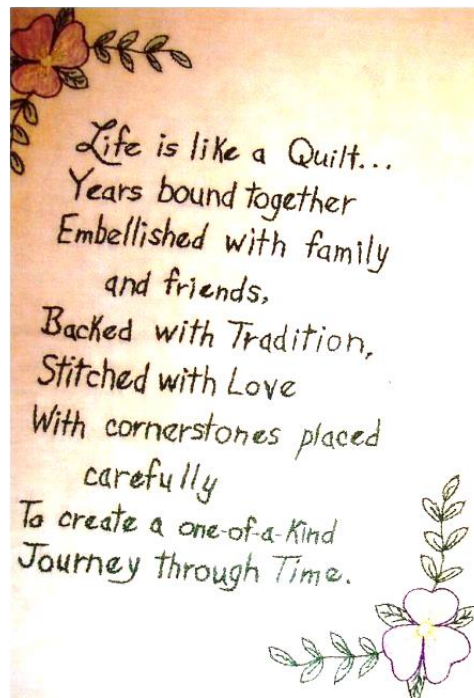 Life is like a Quilt...
Years bound together
Embellished with family
and friends,
Backed with Tradition,
Stitched with Love
With cornerstones placed
carefully
To create a one-of-a-kind
Journey through Time.